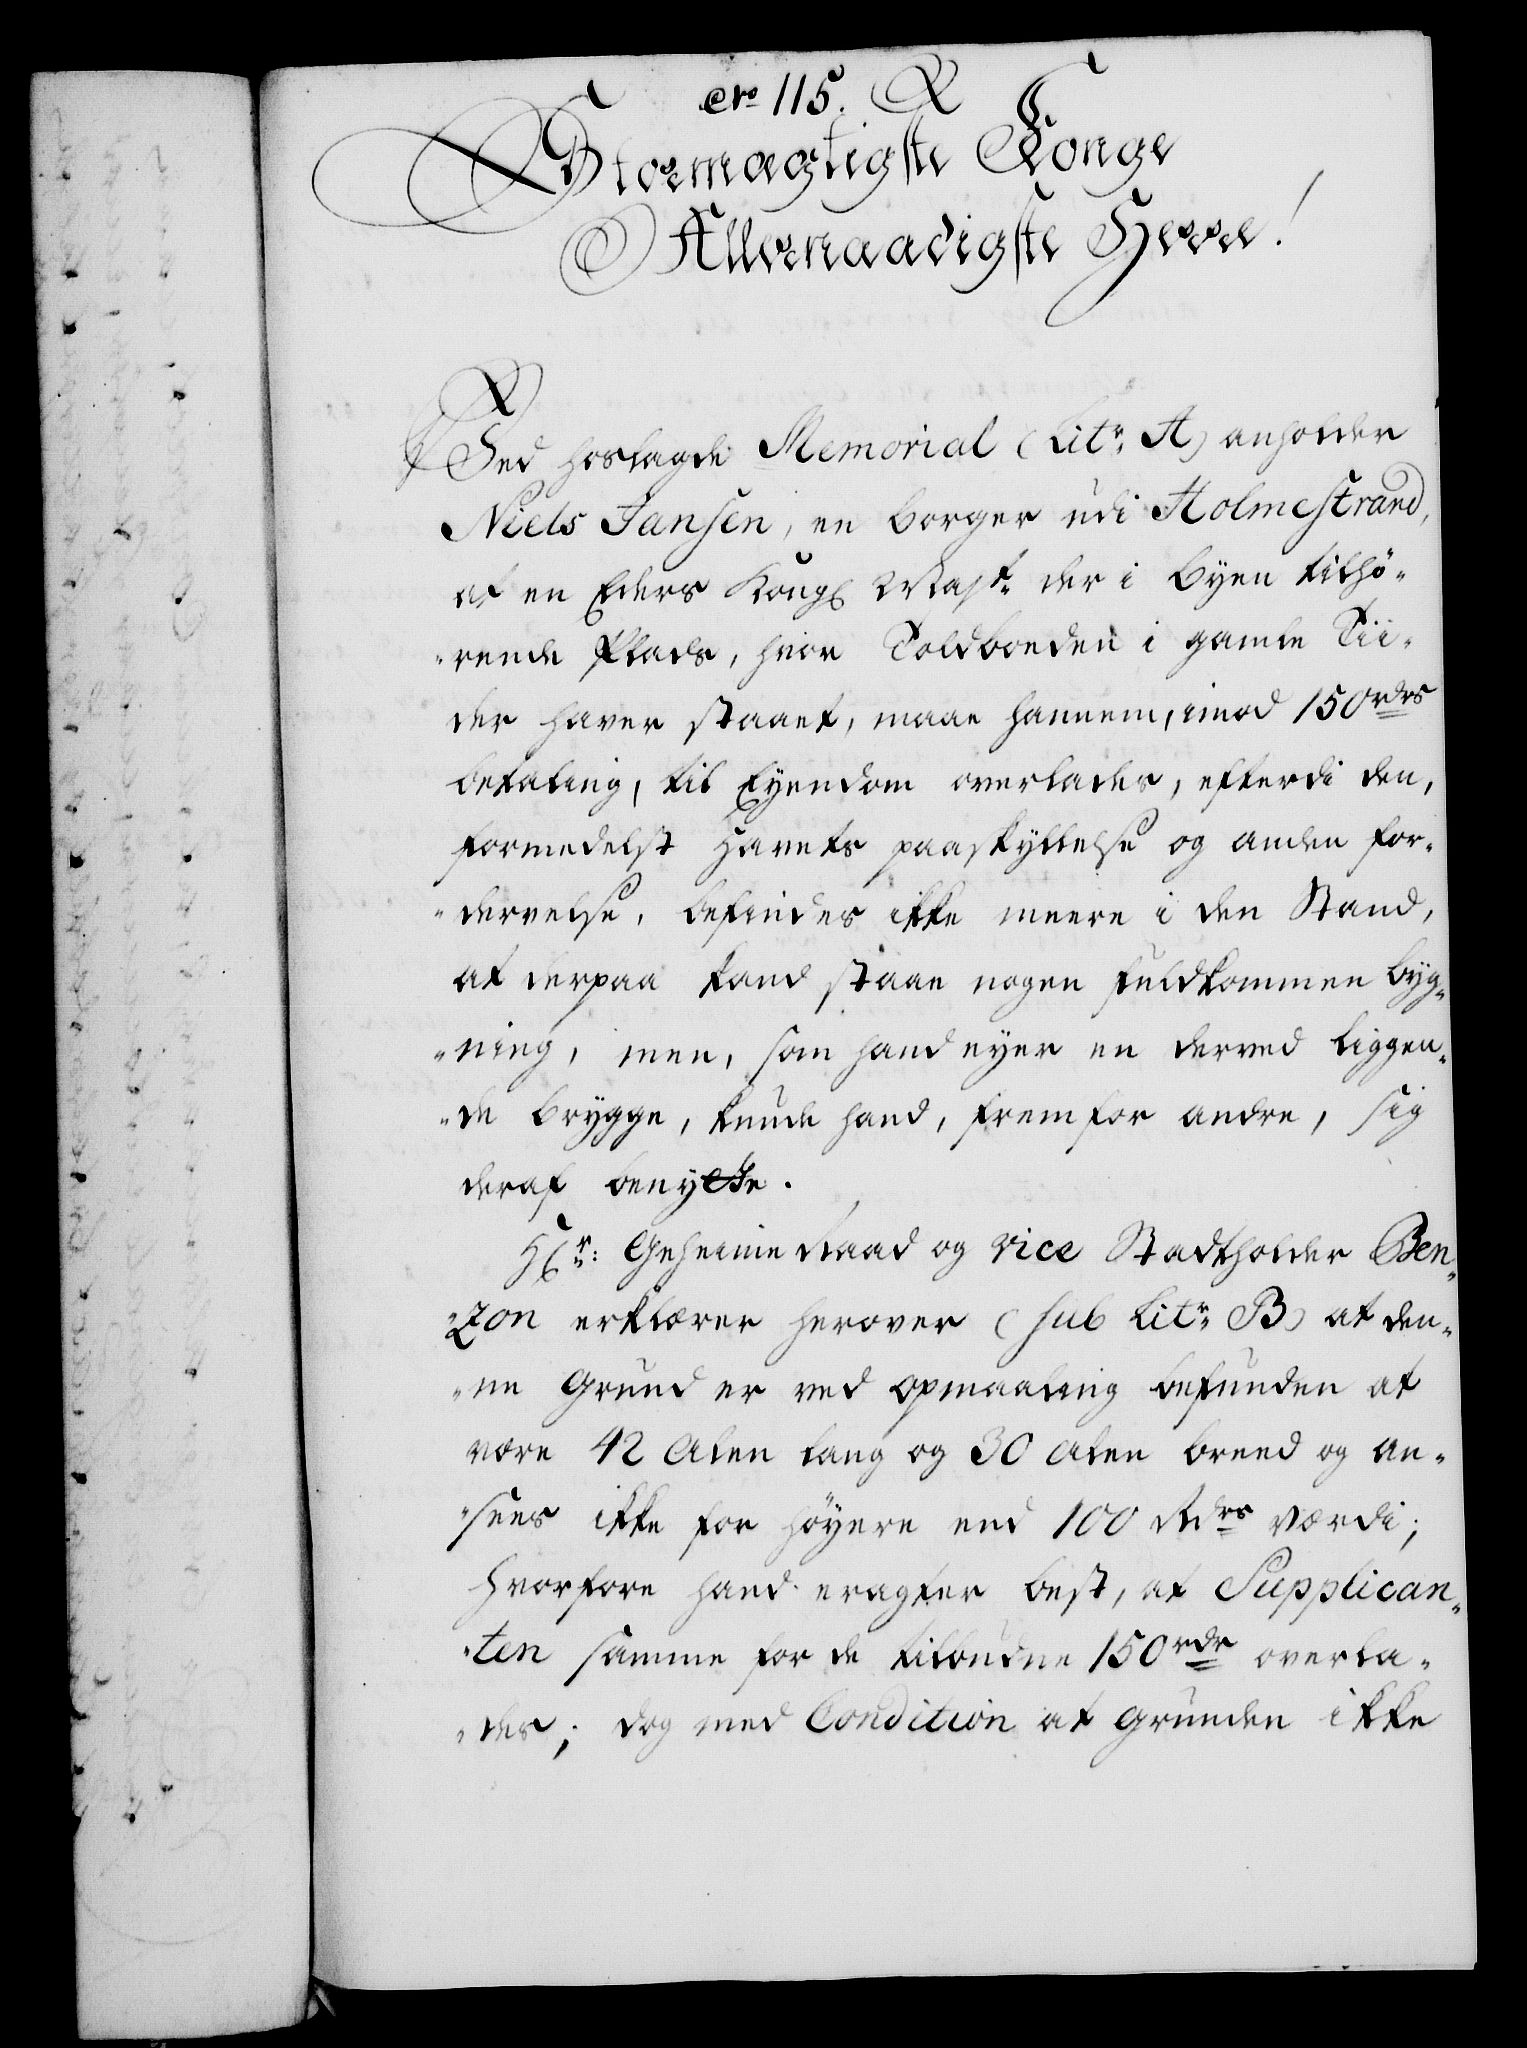 No 115.
Stormægtigste Konge
Allernaadigste Herre!
Ved hoslagde Memorial (Litr. A) anholder
Niels Jansen, en borger udi Holmestrand,
at en Eders Kongl Mayt. der i Byen tilhö-
rende Plads, hvor Toldboeden i gamle Tii-
der haver staaet, maae hannem, imod 150 rdrs
betaling, til Eyendom overlades, efterdi den,
formedelst Havets paaskyllelse og anden for-
dervelse, befindes ikke meere i den Stand,
at derpaa kand staae nogen fuldkommen byg-
ning, men, som hand eyer en derved liggen-
de brygge, kunde hand, fremfor andre, sig
deraf benytte.
Hr: Geheime Raad og vice Stadtholder Ben-
zon erklærer herover (sub Litr. B) at den-
ne grund er ved opmaaling befunden at
være 42 Alen lang og 30 Alen breed og an-
sees ikke for höyere end 100 Rdrs værdi;
hvorfore hand eragter best, at Supplican-
ten samme for de tilbudne 150 rdr overla-
des; dog med Condition at grunden ikke